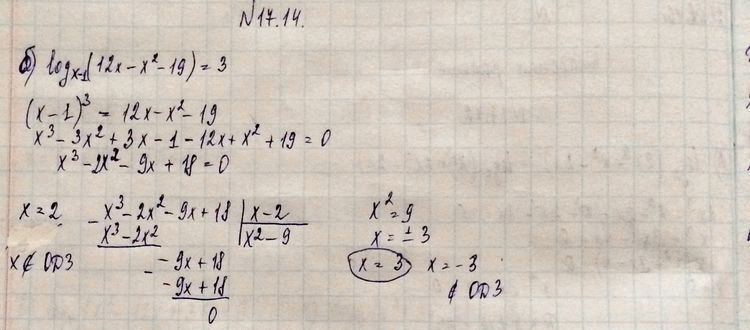 N17.14.
б) log_{x-1}(12x - x² - 19) = 3
(x - 1)³ = 12x - x² - 19
x³ - 3x² + 3x - 1 - 12x + x² + 19 = 0
x³ - 2x² - 9x + 18 = 0
x = 2
x ∉ ОДЗ
- x³ - 2x² - 9x + 18 | x - 2
x³ - 2x²
x² - 9
- - 9x + 18
- 9x + 18
0
x² = 9
x = ± 3
x = 3 x = -3
∉ ОДЗ